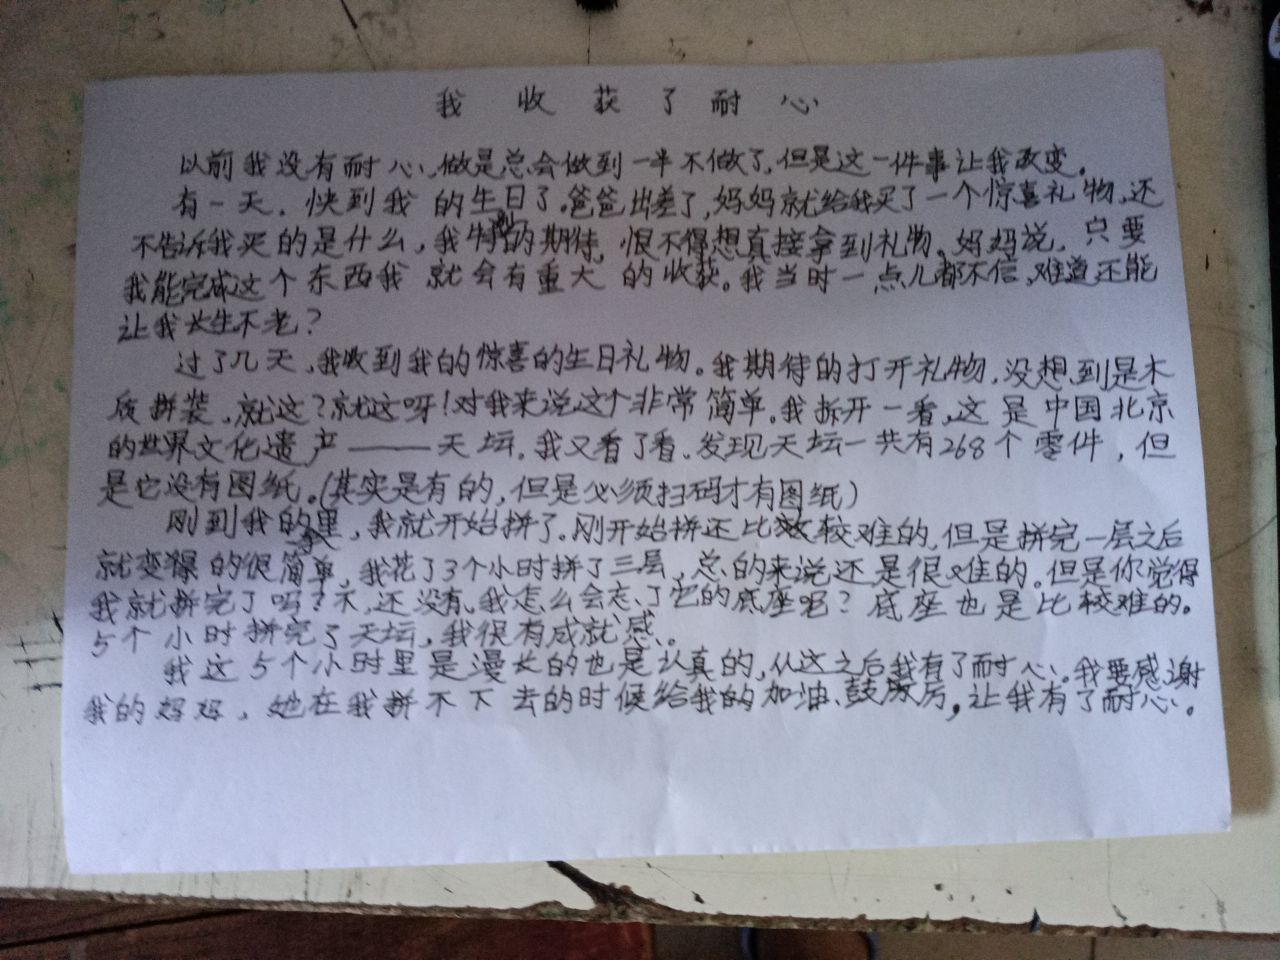 我收获了耐心
以前我没有耐心,做是总会做到一半不做了,但是这一件事让我改变。
有一天,快到我的生日了,爸爸出差了,妈妈就给我买了一个惊喜礼物,还
不告诉我买的是什么,我特别的期待,恨不得想直接拿到礼物。妈妈说,只要
我能完成这个东西我就会有重大的收获。我当时一点儿都不信,难道还能
让我长生不老?
过了几天,我收到我的惊喜的生日礼物。我期待的打开礼物,没想到是木
质拼装,就这?就这呀!对我来说这个非常简单。我拆开一看,这是中国北京
的世界文化遗产——天坛。我又看了看,发现天坛一共有268个零件,但
是它没有图纸。(其实是有的,但是必须扫码才有图纸)
刚到我的家里,我就开始拼了。刚开始拼还比较难的,但是拼完一层之后
就变得的很简单,我花了3个小时拼了三层,总的来说还是很难的。但是你觉得
我就拼完了吗?不,还没有,我怎么会忘了它的底座呢?底座也是比较难的。
5个小时拼完了天坛,我很有成就感。
我这5个小时里是漫长的也是认真的,从这之后我有了耐心。我要感谢
我的妈妈,她在我拼不下去的时候给我的加油、鼓励,让我有了耐心。